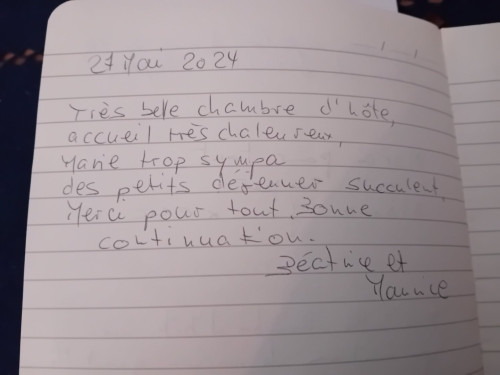 27 Mai 2024
Très belle chambre d'hôte,
accueil très chaleureux,
Marie trop sympa
des petits déjeuner succulent,
Merci pour tout. Bonne
continuation.
Béatrice et